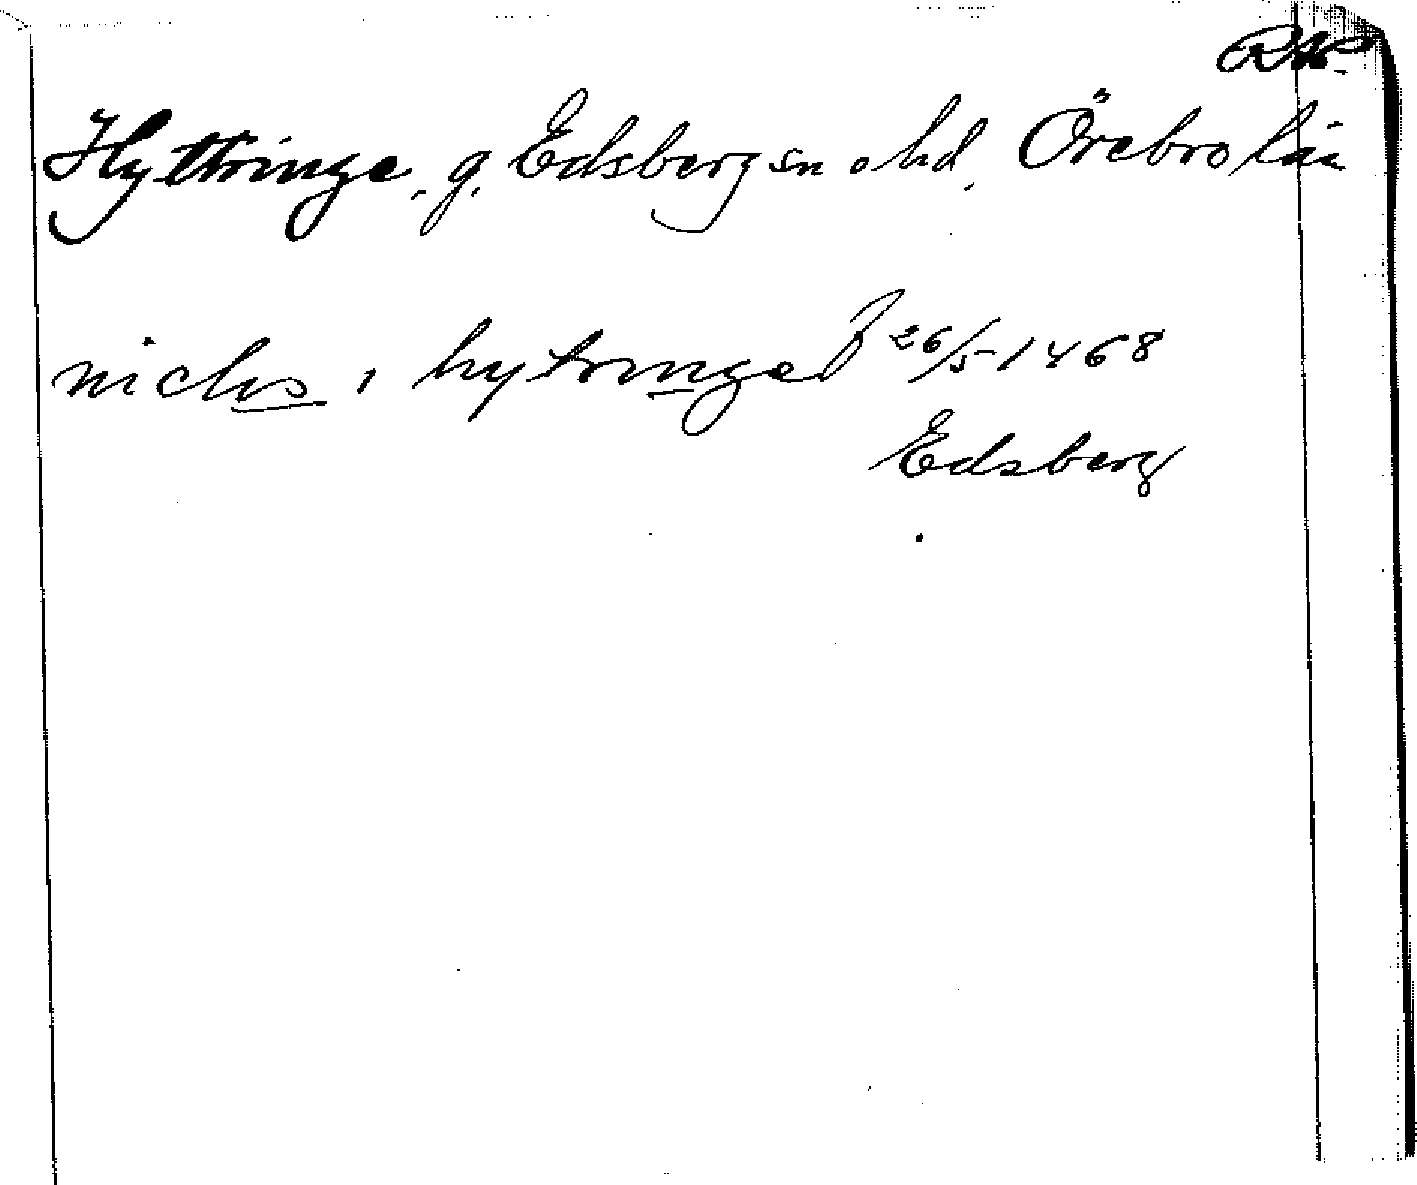 Hyttringe, g. Edsberg sn o hd, Örebro län
niclis i hytringe B 26/5 1468
Edsberg